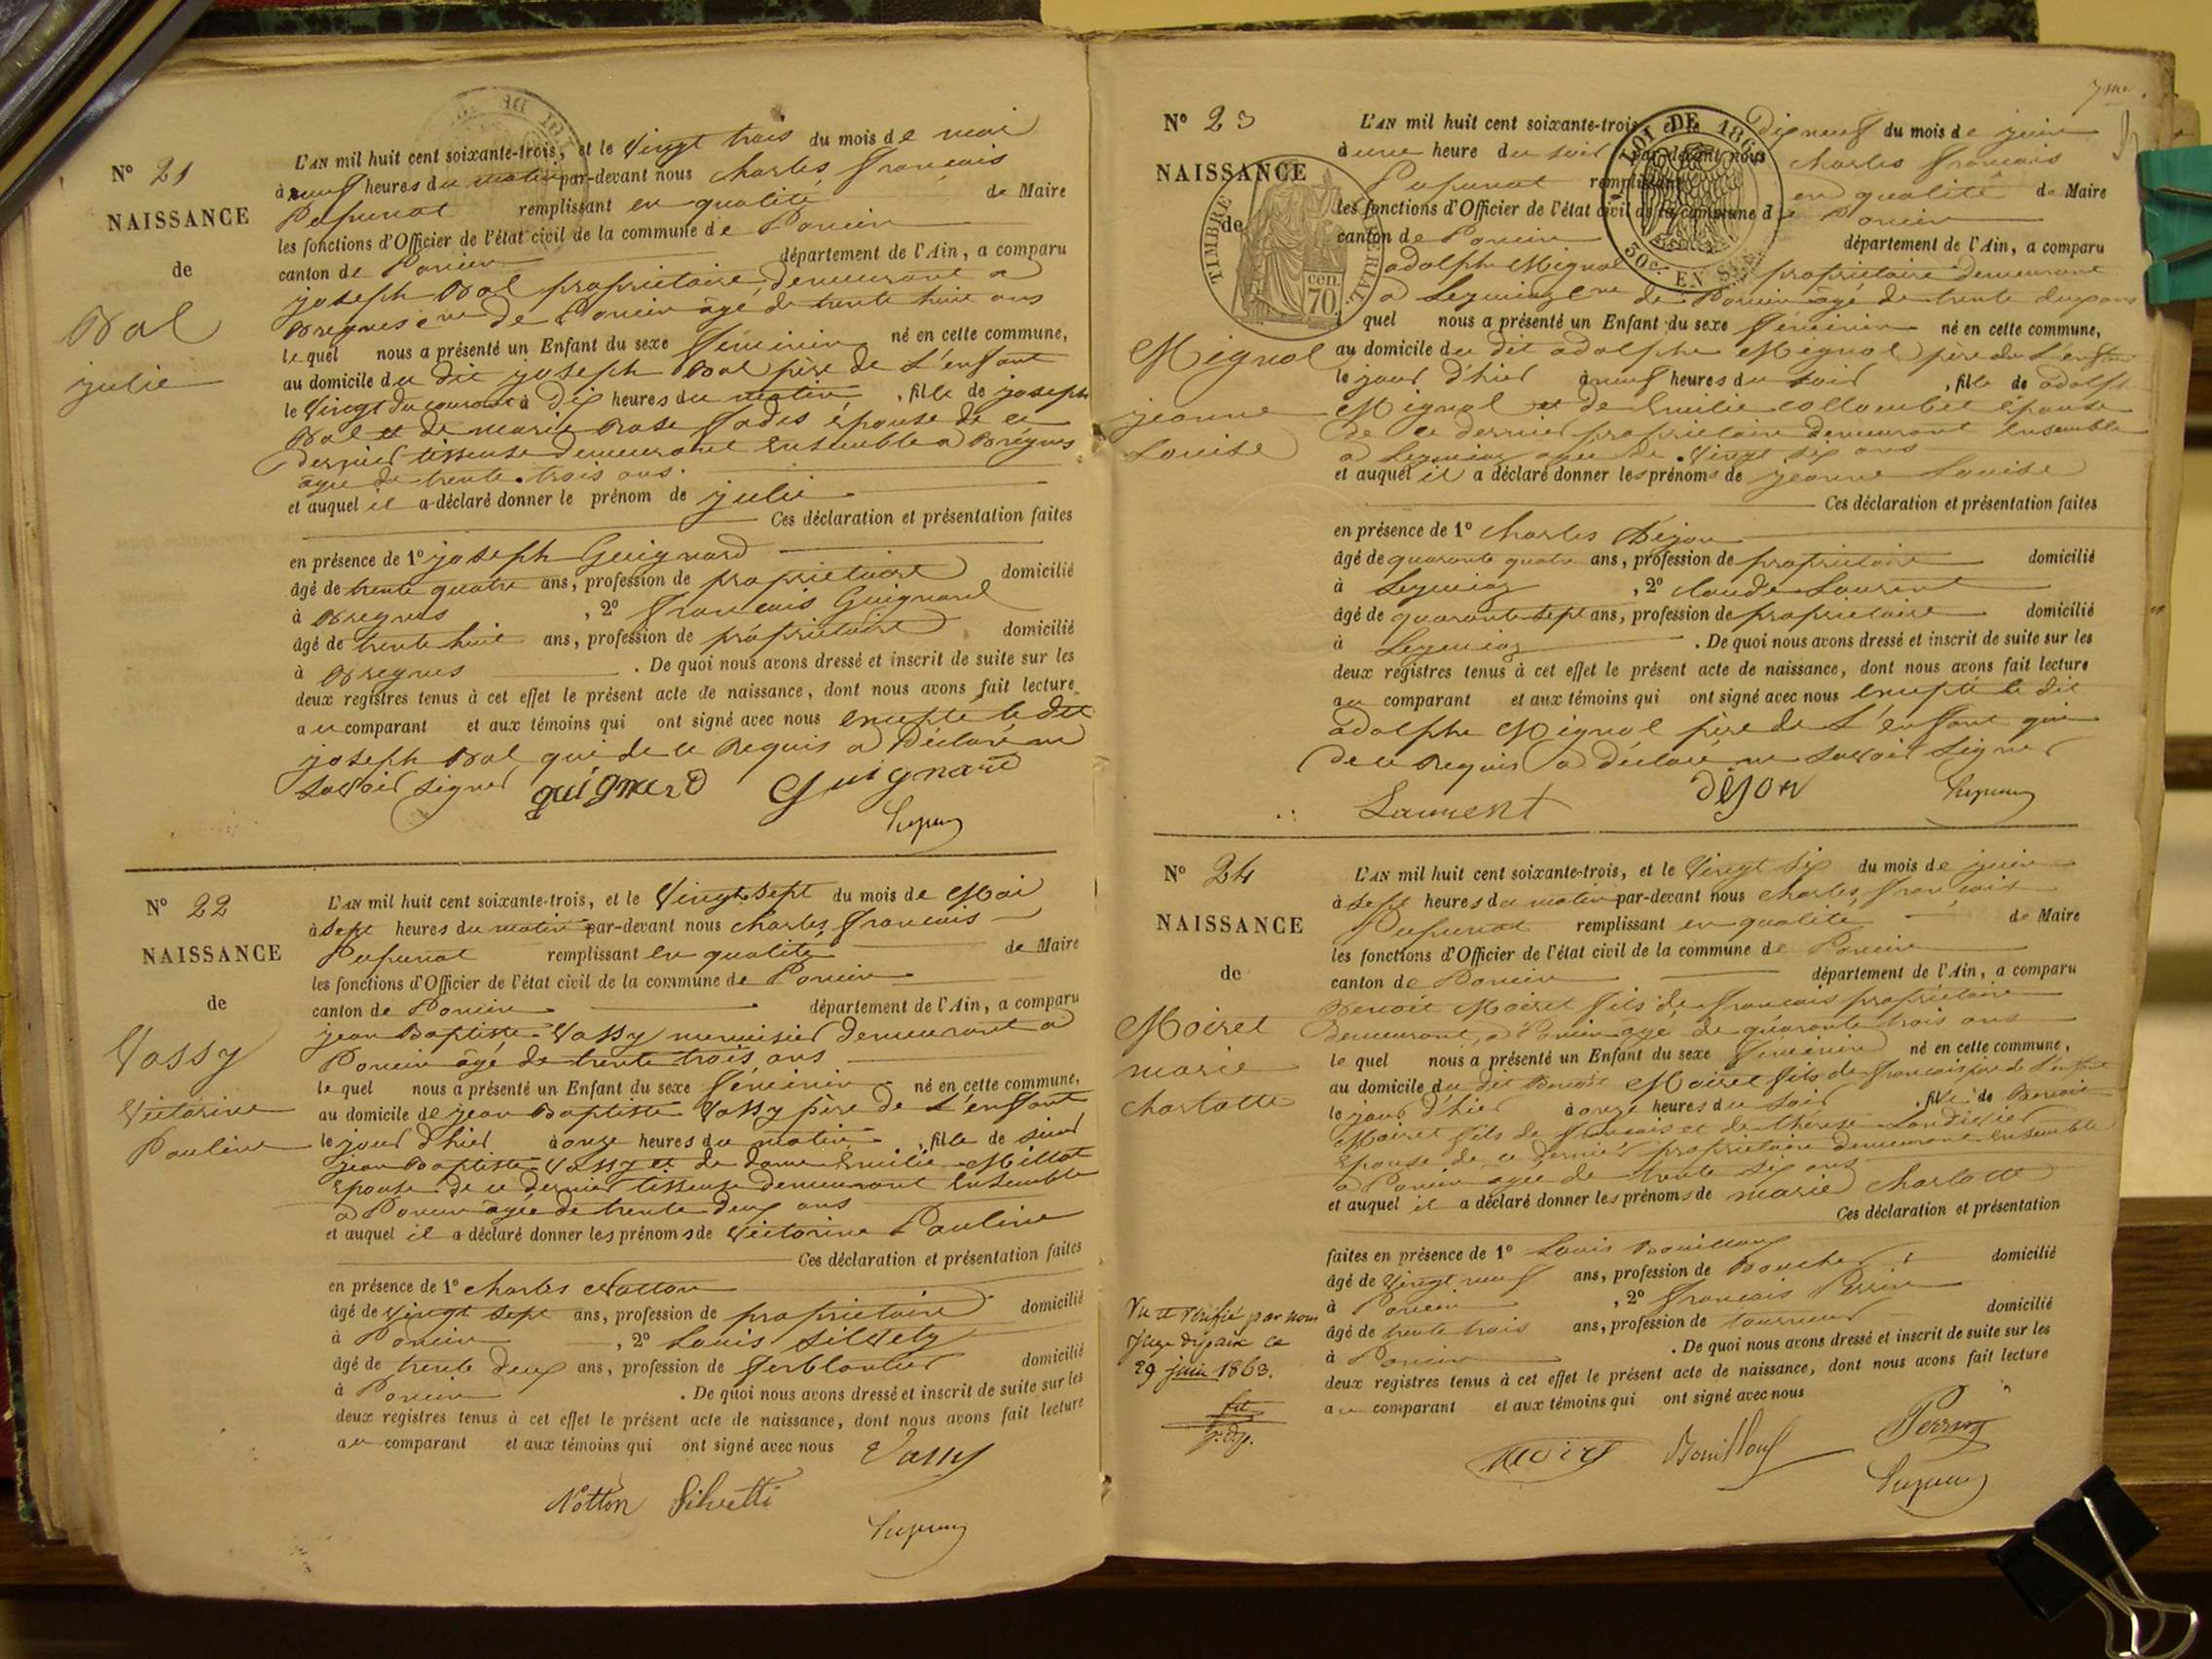 N° 21
NAISSANCE
de
Bal
julie
L'AN mil huit cent soixante-trois, et le Vingt trois du mois de mai
à neuf heures du matin par-devant nous Charles françois
Pupunat remplissant en qualité de Maire
les fonctions d'Officier de l'état civil de la commune de Poncin
canton de Poncin département de l'Ain, a comparu
joseph Bal propriétaire, demeurant a
Bregnes cne de Poncin âgé de trente huit ans
lequel nous a présenté un Enfant du sexe féminin né en cette commune,
au domicile du dit joseph Bal père de L'enfant
le Vingt du courant à Dix heures du matin, fille de joseph
Bal et de marie Rose épouse de ce
dernier tisseuse demeurant Ensemble a Bregnes
agée de trente trois ans
et auquel il a déclaré donner le prénom de julie
Ces déclaration et présentation faites
en présence de 1° joseph Guignard
âgé de trente quatre ans, profession de propriétaire domicilié
à Bregnes, 2° françois Guignard
âgé de trente huit ans, profession de propriétaire domicilié
à Bregnes. De quoi nous avons dressé et inscrit de suite sur les
deux registres tenus à cet effet le présent acte de naissance, dont nous avons fait lecture
au comparant et aux témoins qui ont signé avec nous excepté le dit
joseph Bal qui de ce Requis a Déclaré ne
savoir signer guignard Guignard
N° 22
NAISSANCE
de
Vassy
Victorine
Pauline
L'AN mil huit cent soixante-trois, et le Vingt Sept du mois de Mai
à Sept heures du matin par-devant nous Charles françois
Pupunat remplissant en qualité de Maire
les fonctions d'Officier de l'état civil de la commune de Poncin
canton de Poncin département de l'Ain, a comparu
jean Baptiste Vassy menuisier demeurant a
Poncin âgé de trente trois ans
lequel nous a présenté un Enfant du sexe féminin né en cette commune,
au domicile de jean Baptiste Vassy père de L'enfant
le jour d'hier à onze heures du matin, fille de sieur
jean Baptiste Vassy et de dame Emilie Millot
Epouse de ce dernier tisseuse demeurant Ensemble
a Poncin âgée de trente deux ans
et auquel il a déclaré donner les prénoms de Victorine Pauline
Ces déclaration et présentation faites
en présence de 1° Charles Notton
âgé de Vingt Sept ans, profession de propriétaire domicilié
à Poncin, 2° Louis
âgé de trente deux ans, profession de ferblantier domicilié
à Poncin. De quoi nous avons dressé et inscrit de suite sur les
deux registres tenus à cet effet le présent acte de naissance, dont nous avons fait lecture
au comparant et aux témoins qui ont signé avec nous Vassy
Notton Silvetti
7me
N° 23
NAISSANCE
de
Mignol
jeanne
Louise
TIMBRE IMPERIAL
70 cen.
LOI DE 186
50c. EN SUS
L'AN mil huit cent soixante-trois et le Dix neuf du mois de juin
à une heure du soir par-devant nous Charles françois
Pupunat remplissant en qualité de Maire
les fonctions d'Officier de l'état civil de la commune de Poncin
canton de Poncin département de l'Ain, a comparu
adolphe Mignol propriétaire demeurant
a Leymiaz cne de Poncin âgé de trente deux ans
lequel nous a présenté un Enfant du sexe féminin né en cette commune,
au domicile du dit adolphe Mignol père de L'enfant
le jour d'hier à neuf heures du soir, fille de adolphe
Mignol et de Emilie Collombet épouse
de ce dernier propriétaire demeurant Ensemble
a Leymiaz agée de Vingt six ans
et auquel il a déclaré donner les prénoms de jeanne Louise
Ces déclaration et présentation faites
en présence de 1° Charles Dejon
âgé de quarante quatre ans, profession de propriétaire domicilié
à Leymiaz, 2° claude Laurent
âgé de quarante sept ans, profession de propriétaire domicilié
à Leymiaz. De quoi nous avons dressé et inscrit de suite sur les
deux registres tenus à cet effet le présent acte de naissance, dont nous avons fait lecture
au comparant et aux témoins qui ont signé avec nous excepté le dit
adolphe Mignol père de L'enfant qui
de ce Requis a déclaré ne savoir signer
Laurent dejon
N° 24
NAISSANCE
de
Moiret
marie
charlotte
L'AN mil huit cent soixante-trois, et le Vingt six du mois de juin
à sept heures du matin par-devant nous Charles françois
Pupunat remplissant en qualité de Maire
les fonctions d'Officier de l'état civil de la commune de Poncin
canton de Poncin département de l'Ain, a comparu
Benoit Moiret fils de françois propriétaire
demeurant a Poncin agé de quarante trois ans
lequel nous a présenté un Enfant du sexe féminin né en cette commune,
au domicile du dit Benoit Moiret fils de françois père de L'enfant
le jour d'hier à onze heures du soir, fille de Benoit
Moiret fils de françois et de thérèse
Epouse de ce dernier propriétaire demeurant Ensemble
a Poncin agée de trente six ans
et auquel il a déclaré donner les prénoms de marie Charlotte
Ces déclaration et présentation
faites en présence de 1° Louis Bouilloux
âgé de Vingt neuf ans, profession de Boucher domicilié
à Poncin, 2° françois Perrin
âgé de trente trois ans, profession de tourneur domicilié
à Poncin. De quoi nous avons dressé et inscrit de suite sur les
deux registres tenus à cet effet le présent acte de naissance, dont nous avons fait lecture
au comparant et aux témoins qui ont signé avec nous
Moiret Bouilloux Perrin
Vu et vérifié par nous
Juge de paix ce
29 juin 1863.